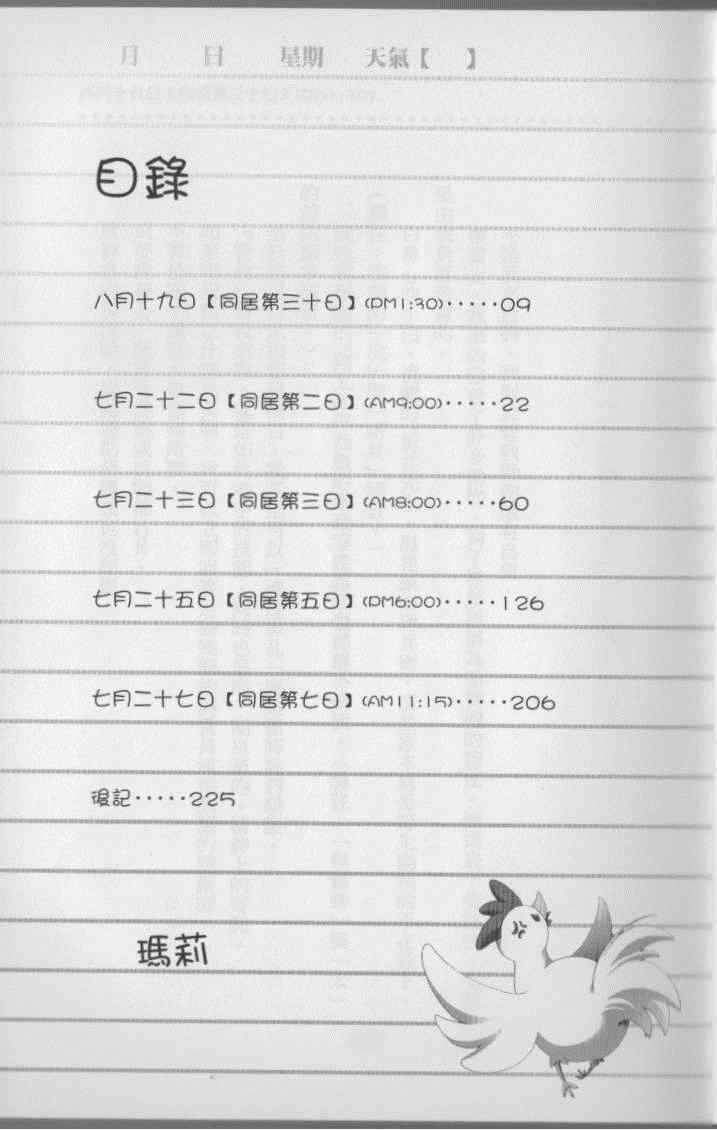 月 日 星期 天氣【 】
目錄
八月十九日【同居第三十日】(PM1:30)·····09
七月二十二日【同居第二日】(AM9:00)·····22
七月二十三日【同居第三日】(AM8:00)·····60
七月二十五日【同居第五日】(PM6:00)·····126
七月二十七日【同居第七日】(AM11:15)·····206
後記·····225
瑪莉